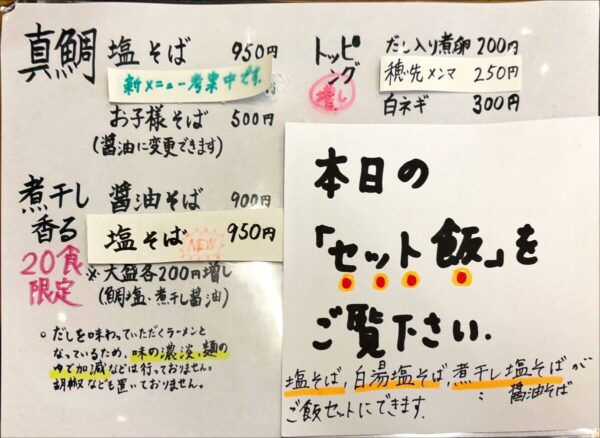 真鯛 塩そば 950円
新メニュー考案中です.
お子様そば 500円
(醤油に変更できます)
煮干し香る 醤油そば 900円
塩そば NEW 950円
20食限定
※大盛各200円増し
(鯛塩・煮干し醤油)
○だしを味わっていただくラーメンと
なっているため、味の濃淡、麺の
ゆで加減などは行っておりません。
胡椒なども置いておりません。
トッピング 増し
だし入り煮卵 200円
穂先メンマ 250円
白ネギ 300円
本日の
「セット飯」を
ご覧下さい.
塩そば,白湯塩そば,煮干し塩そばが
醤油そば
ご飯セットにできます.